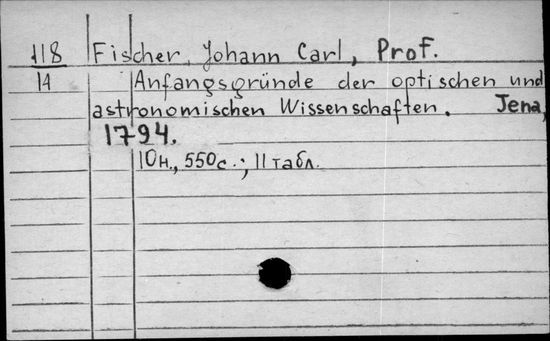 118 Fischer, Johann Carl, Prof.
14 Anfangsgründe der optischen und
astronomischen Wissenschaften. Jena,
1794.
10н., 550с.; 11 табл.